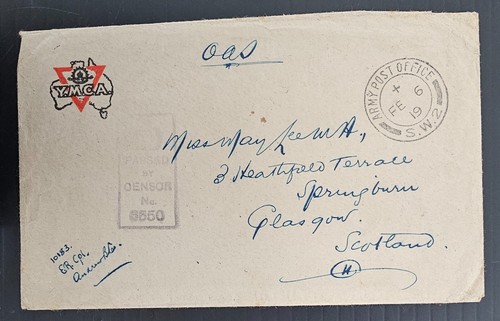 OAS
Y.M.C.A.
ARMY POST OFFICE
X
FE 6
19
S.W.2
Miss May
3 Heathfield Terrace
Springburn
Glasgow.
Scotland.
PASSED
BY
CENSOR
No.
10183.
Cpl.